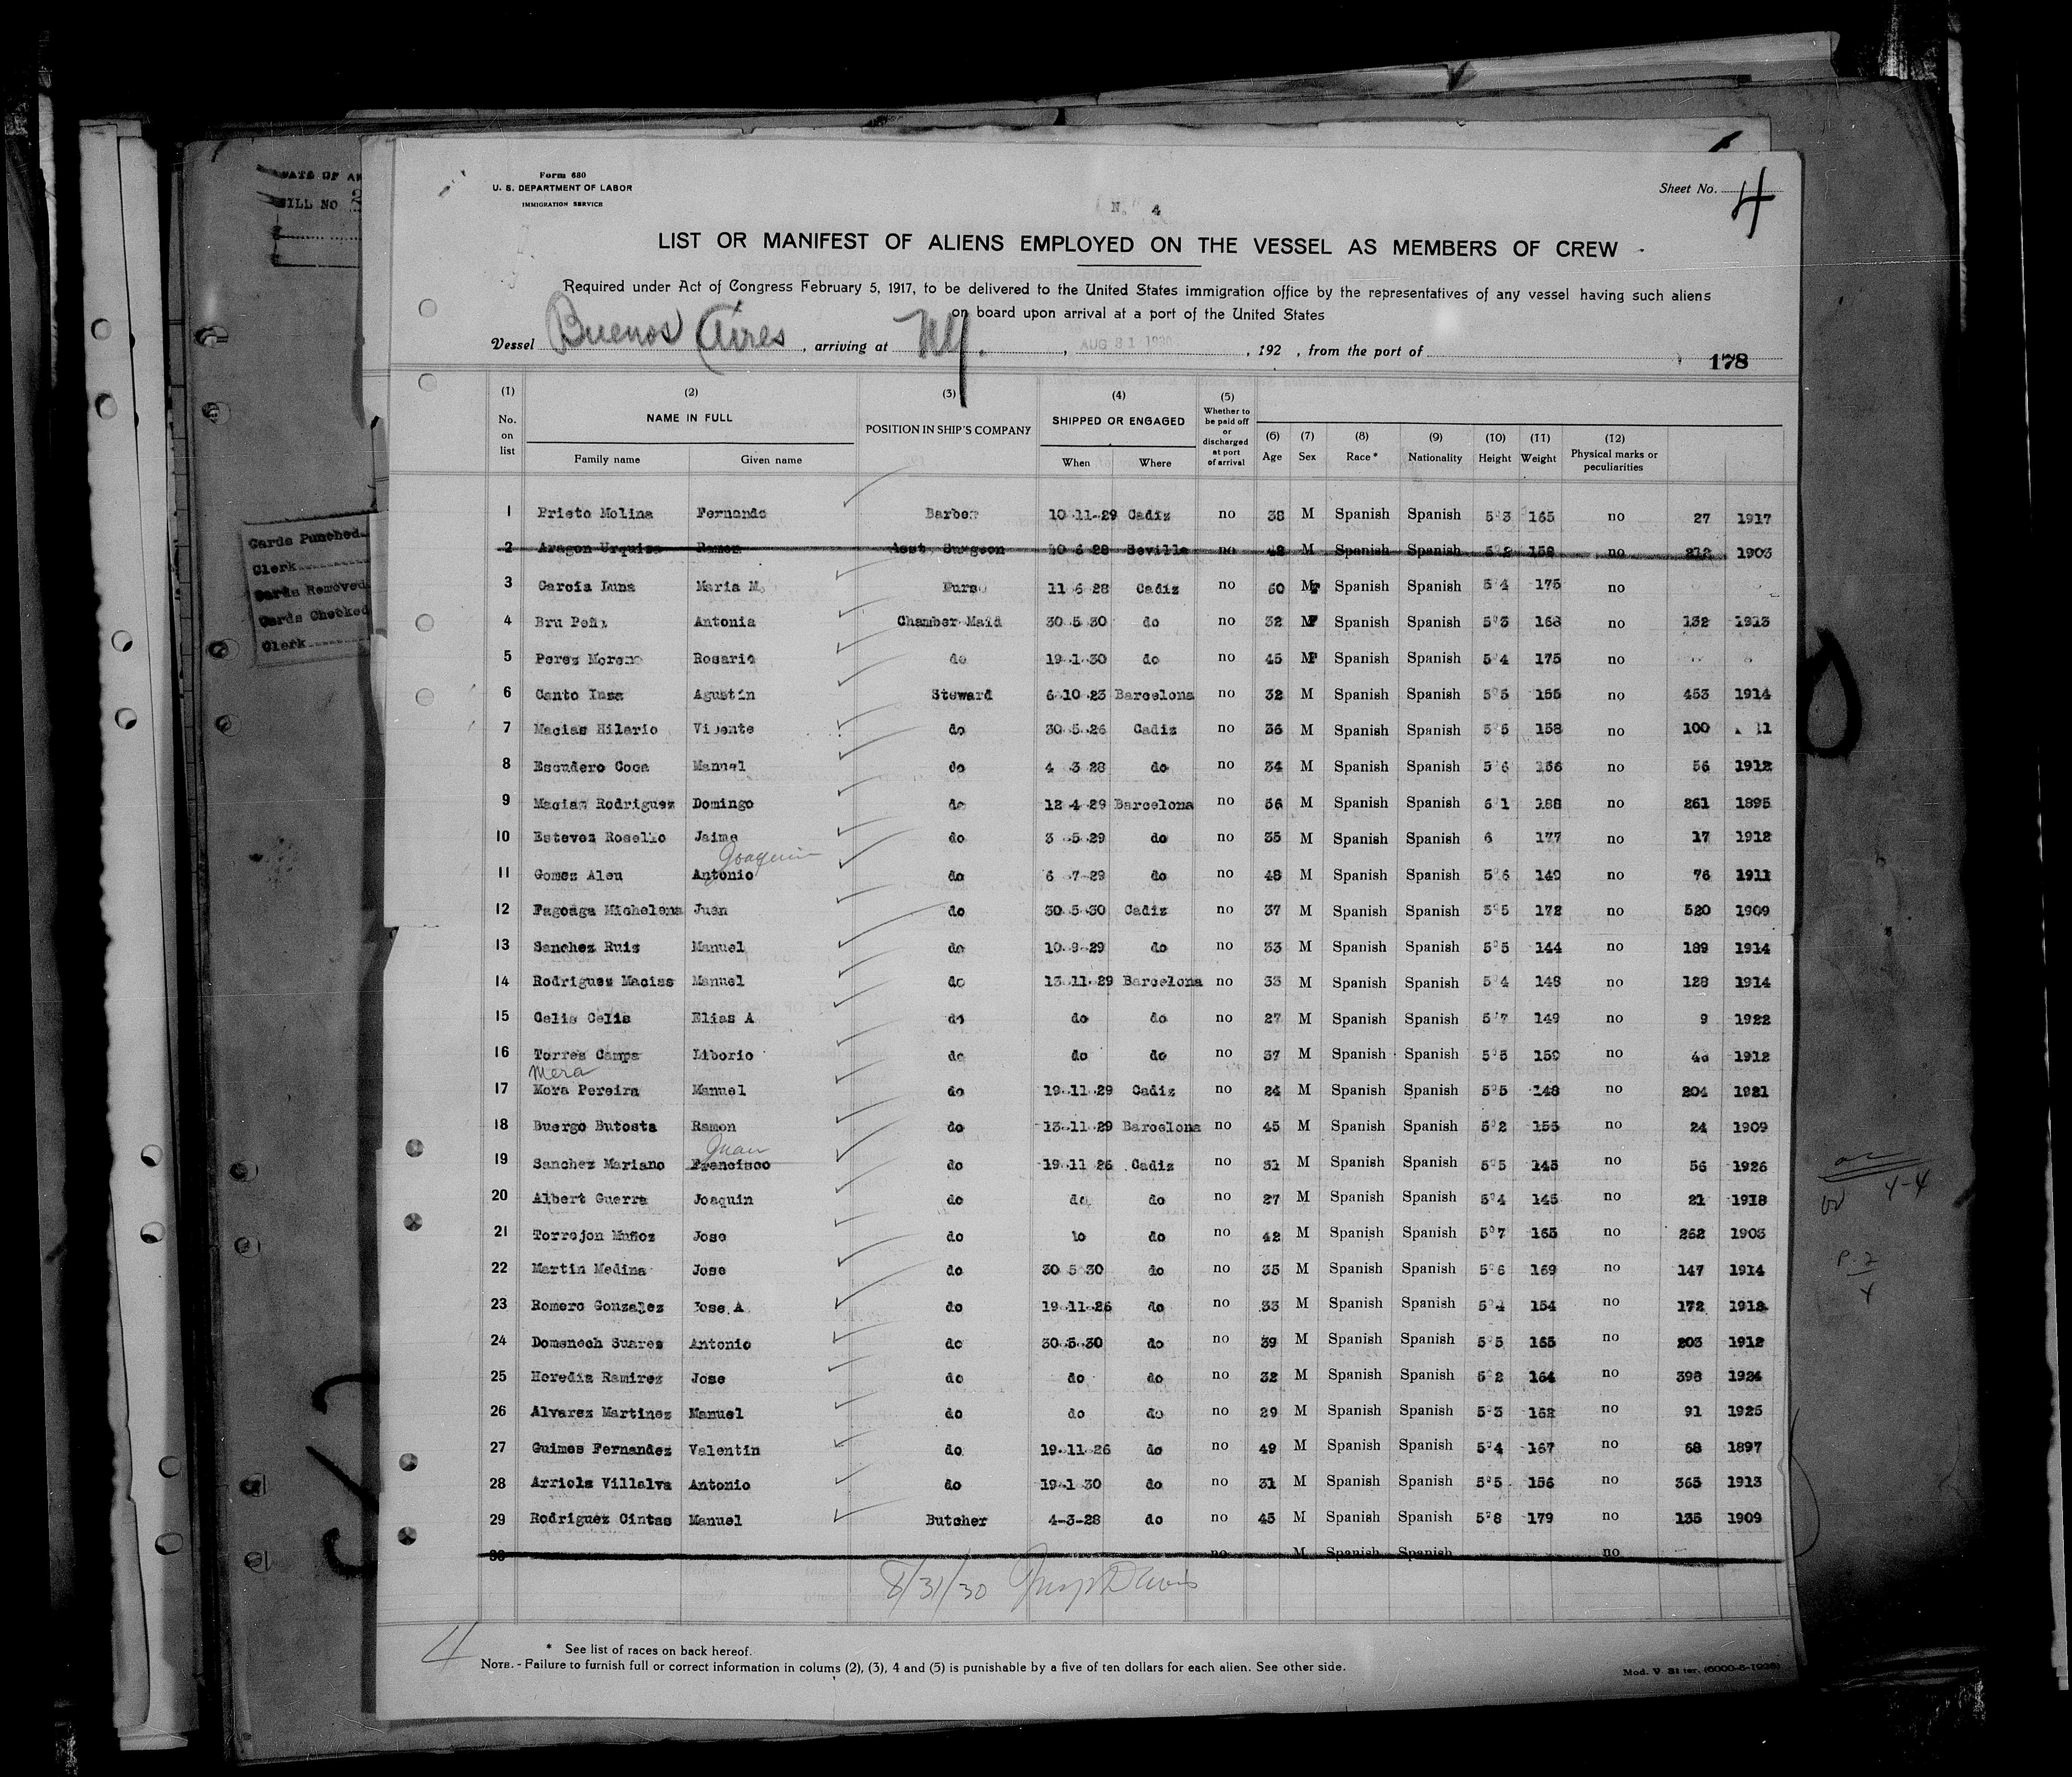 Form 680
U. S. DEPARTMENT OF LABOR
IMMIGRATION SERVICE
Sheet No. 4
N. 4
LIST OR MANIFEST OF ALIENS EMPLOYED ON THE VESSEL AS MEMBERS OF CREW
Required under Act of Congress February 5, 1917, to be delivered to the United States immigration office by the representatives of any vessel having such aliens
on board upon arrival at a port of the United States
Vessel Buenos Aires, arriving at NY., AUG 31 1930, 192 , from the port of
178
(1) (2) (3) (4) (5) (6) (7) (8) (9) (10) (11) (12)
No. on list NAME IN FULL POSITION IN SHIP'S COMPANY SHIPPED OR ENGAGED Whether to be paid off or discharged at port of arrival Age Sex Race* Nationality Height Weight Physical marks or peculiarities
Family name Given name When Where
1 Prieto Molina Fernando Barber 10 11-29 Cadiz no 38 M Spanish Spanish 5 3 165 no 27 1917
2 Aragon Urquiza Ramon Asst. Surgeon 6 28 Sevilla no 48 M Spanish Spanish 5 2 158 no 212 1903
3 Garcia Luna Maria M. 11 6 28 Cadiz no 60 F Spanish Spanish 5 4 175 no
4 Bru Peña Antonia Chamber Maid 30 5 30 do no 32 F Spanish Spanish 5 3 168 no 132 1913
5 Perez Moreno Rosario do 19 1 30 do no 45 F Spanish Spanish 5 4 175 no
6 Canto Insa Agustin Steward 6 10 23 Barcelona no 32 M Spanish Spanish 5 5 155 no 453 1914
7 Macias Hilario Vicente do 30 5 26 Cadiz no 36 M Spanish Spanish 5 5 158 no 100 11
8 Escudero Coca Manuel do 4 3 28 do no 34 M Spanish Spanish 5 6 166 no 56 1912
9 Macias Rodriguez Domingo do 12 4 29 Barcelona no 56 M Spanish Spanish 6 1 188 no 261 1895
10 Estevez Rosello Jaime do 3 5 29 do no 35 M Spanish Spanish 6 177 no 17 1912
Joaquin
11 Gomez Aleu Antonio do 6 7-29 do no 48 M Spanish Spanish 5 6 149 no 76 1911
12 Fagoaga Michelena Juan do 30 5 30 Cadiz no 37 M Spanish Spanish 5 5 172 no 520 1909
13 Sanchez Ruiz Manuel do 10 9 29 do no 33 M Spanish Spanish 5 5 144 no 189 1914
14 Rodriguez Macias Manuel do 13 11 29 Barcelona no 33 M Spanish Spanish 5 4 148 no 128 1914
15 Celis Celis Elias A do do do no 27 M Spanish Spanish 5 7 149 no 9 1922
16 Torres Campa Liborio do do do no 37 M Spanish Spanish 5 5 159 no 1912
Mera
17 Mora Pereira Manuel do 19 11 29 Cadiz no 24 M Spanish Spanish 5 5 148 no 204 1921
18 Buergo Butosta Ramon do 13 11 29 Barcelona no 45 M Spanish Spanish 5 2 155 no 24 1909
Juan
19 Sanchez Mariano Francisco do 19 11 26 Cadiz no 31 M Spanish Spanish 5 5 145 no 56 1926
20 Albert Guerra Joaquin do do do no 27 M Spanish Spanish 5 4 145 no 21 1918
21 Torrejon Muñoz Jose do do do no 42 M Spanish Spanish 5 7 165 no 262 1903
22 Martin Medina Jose do 30 5 30 do no 35 M Spanish Spanish 5 6 169 no 147 1914
23 Romero Gonzalez Jose A do 19-11-26 do no 33 M Spanish Spanish 5 4 154 no 172 1912
24 Domenech Suarez Antonio do 30 5 30 do no 39 M Spanish Spanish 5 5 165 no 203 1912
25 Heredia Ramirez Jose do do do no 32 M Spanish Spanish 5 2 164 no 398 1924
26 Alvarez Martinez Manuel do do do no 29 M Spanish Spanish 5 3 162 no 91 1925
27 Guimes Fernandez Valentin do 19-11 26 do no 49 M Spanish Spanish 5 4 167 no 68 1897
28 Arriola Villalva Antonio do 19-1 30 do no 31 M Spanish Spanish 5 5 156 no 365 1913
29 Rodriguez Cintas Manuel Butcher 4-3-28 do no 45 M Spanish Spanish 5 8 179 no 135 1909
30 no M Spanish Spanish no
8/31/30 Davis
4
* See list of races on back hereof.
NOTE. - Failure to furnish full or correct information in colums (2), (3), 4 and (5) is punishable by a five of ten dollars for each alien. See other side.
Mod. V. 81 ter. (6000-8-1928)
Cards Punched
Clerk
Cards Removed
Cards Checked
Clerk
4-4
P-2